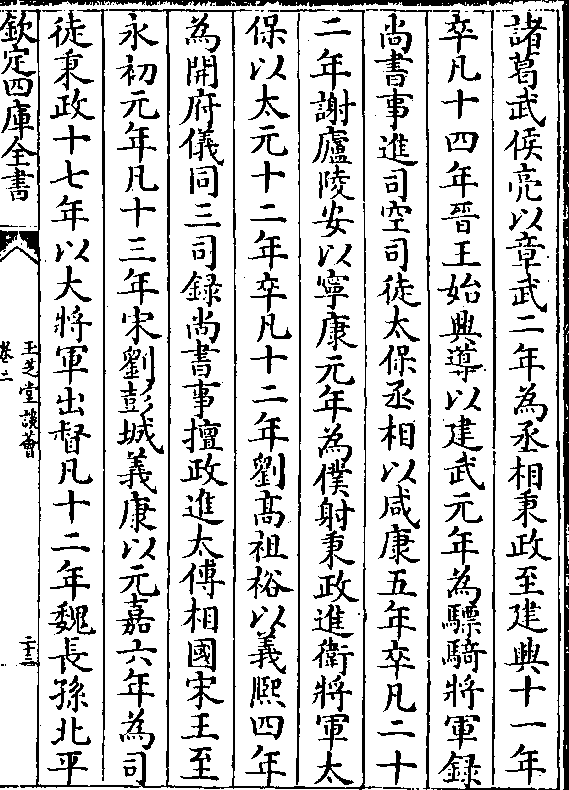 諸葛武侯亮以章武二年為丞相秉政至建興十一年
卒凡十四年晉王始興導以建武元年為驃騎將軍録
尚書事進司空司徒太保丞相以咸康五年卒凡二十
二年謝廬陵安以寧康元年為僕射秉政進衛將軍太
保以太元十二年卒凡十二年劉髙祖裕以義熈四年
為開府儀同三司録尚書事擅政進太傅相國宋王至
永初元年凡十三年宋劉彭城義康以元嘉六年為司
徒秉政十七年以大將軍出督凡十二年魏長孫北平
欽定四庫全書
玉芝堂談薈
卷二
二十三